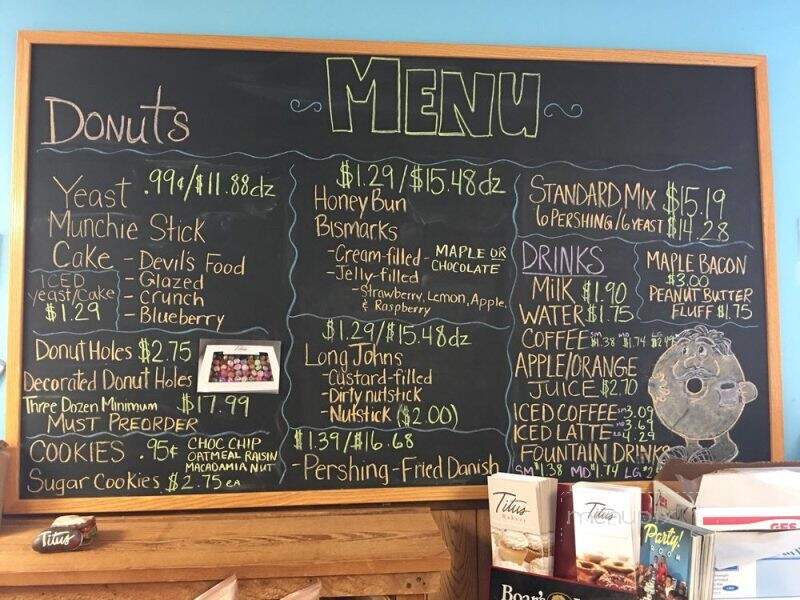 MENU
DONUTS
Yeast .99¢/$11.88dz
Munchie Stick
Cake - Devil's Food
- Glazed
- Crunch
- Blueberry
ICED
yeast/cake
$1.29
Donut Holes $2.75
Decorated Donut Holes
Three Dozen Minimum $17.99
MUST PREORDER
COOKIES .95¢ CHOC CHIP
OATMEAL RAISIN
MACADAMIA NUT
Sugar Cookies $2.75 EA
$1.29/$15.48dz
Honey Bun
Bismarks
- Cream-filled - MAPLE OR
CHOCOLATE
- Jelly-filled
- Strawberry, Lemon, Apple,
& Raspberry
$1.29/$15.48dz
Long Johns
- Custard-filled
- Dirty nutstick
- Nutstick ($2.00)
$1.39/$16.68
- Pershing - Fried Danish
STANDARD MIX $15.19
6 PERSHING/6 YEAST $14.28
DRINKS
MILK $1.90
WATER $1.75
COFFEE SM $1.38 MD $1.74 LG
APPLE/ORANGE
JUICE $2.70
ICED COFFEE SM 3.09
ICED LATTE MD 3.69
LG 4.29
FOUNTAIN DRINKS
SM $1.38 MD $1.74 LG
MAPLE BACON
$3.00
PEANUT BUTTER
FLUFF $1.75
Titus
Titus
Bakery
Titus
Party!
ROOM
Boar's